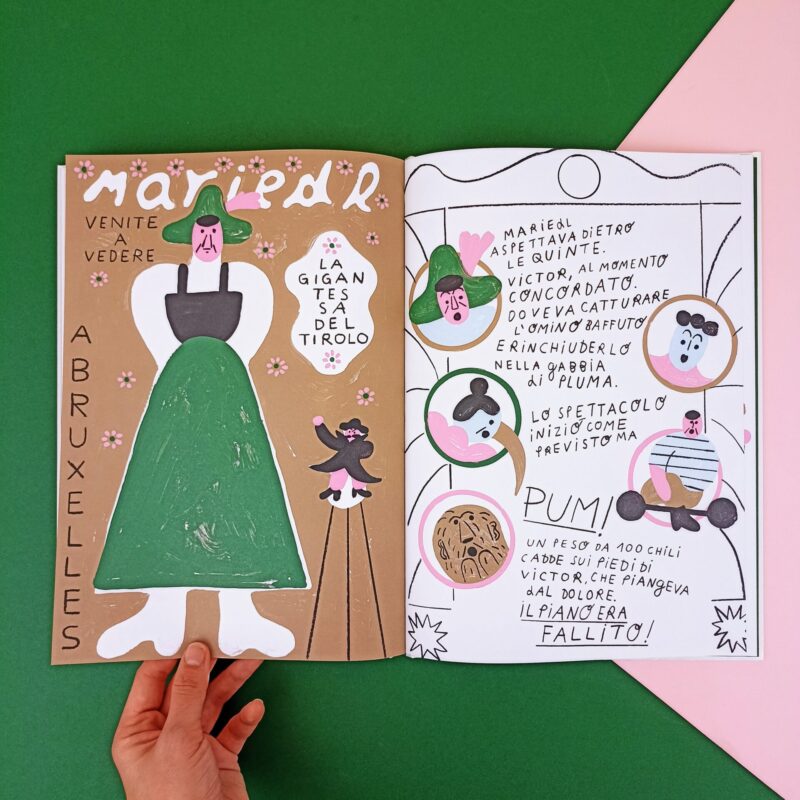 mariedl
VENITE
A
VEDERE
LA
GIGAN
TES
SA
DEL
TIROLO
A BRUXELLES
MARIEdL
ASPETTAVA DIETRO
LE QUINTE.
VICTOR, AL MOMENTO
CONCORDATO.
DOVEVA CATTURARE
L'OMINO BAFFUTO
E RINCHIUDERLO
NELLA GABBIA
di PLUMA.
LO SPETTACOLO
INIZIÒ COME
PREVISTO MA
PUM!
UN PESO DA 100 CHILI
CADDE SUI PIEDI DI
VICTOR, CHE PIANGEVA
DAL DOLORE.
IL PIANO ERA
FALLITO!